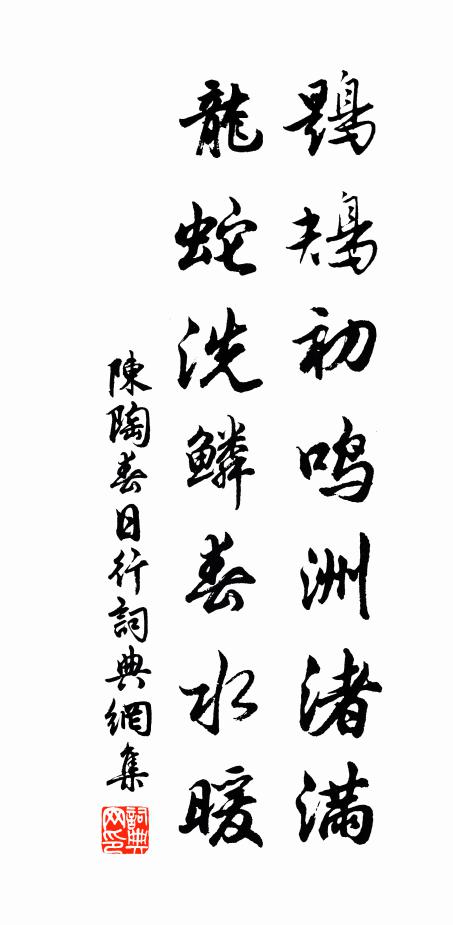 鶗鳺初鸣洲渚满
龍蛇洗鱗春水暖
陳陶春日行詞典網集
詞典
网印